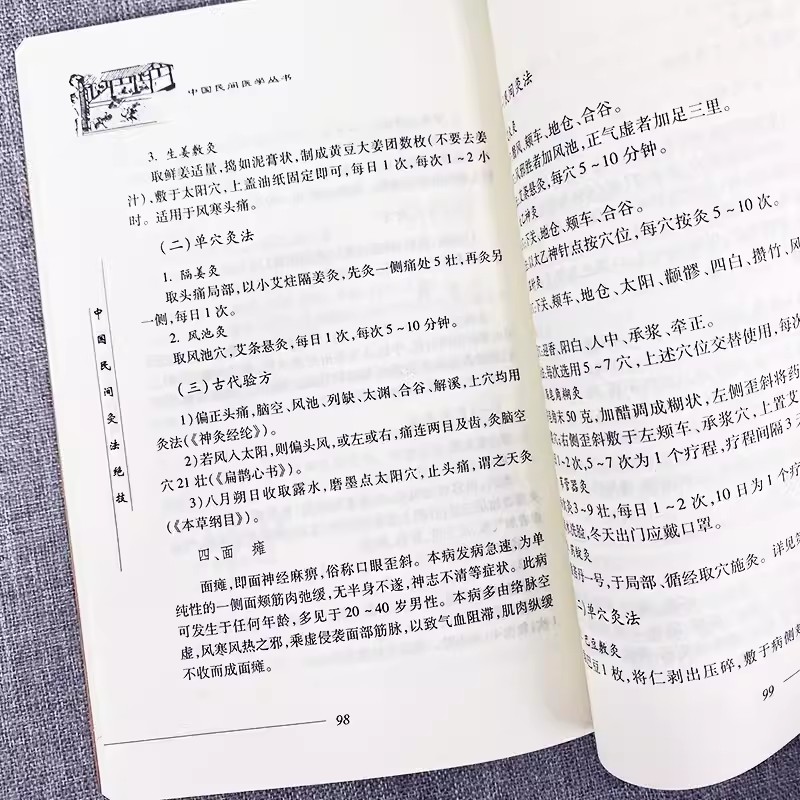 中国民间医学丛书
3. 生姜敷灸
取鲜姜适量,捣如泥膏状,制成黄豆大姜团数枚(不要去姜
汁),敷于太阳穴,上盖油纸固定即可,每日1次,每次1~2小
时。适用于风寒头痛。
(二)单穴灸法
1. 隔姜灸
取头痛局部,以小艾炷隔姜灸,先灸一侧痛处5壮,再灸另
一侧,每日1次。
2. 风池灸
取风池穴,艾条悬灸,每日1次,每次5~10分钟。
(三)古代验方
1)偏正头痛,脑空、风池、列缺、太渊、合谷、解溪,上穴均用
灸法(《神灸经纶》)。
2)若风入太阳,则偏头风,或左或右,痛连两目及齿,灸脑空
穴21壮(《扁鹊心书》)。
3)八月朔日收取露水,磨墨点太阳穴,止头痛,谓之天灸
(《本草纲目》)。
四、面瘫
面瘫,即面神经麻痹,俗称口眼歪斜。本病发病急速,为单
纯性的一侧面颊筋肉弛缓,无半身不遂,神志不清等症状。此病
可发生于任何年龄,多见于20~40岁男性。本病多由络脉空
虚,风寒风热之邪,乘虚侵袭面部筋脉,以致气血阻滞,肌肉纵缓
不收而成面瘫。
中国民间灸法绝技
98
间灸法
灸
风、颊车、地仓、合谷。
胜者加风池,正气虚者加足三里。
艾条悬灸,每穴5~10分钟。
神灸
下关、地仓、颊车、合谷。
以太乙神针点按穴位,每穴按灸5~10次。
灸
下关、颊车、地仓、太阳、颧髎、四白、攒竹、风
迎香、阳白、人中、承浆、牵正。
每次选用5~7穴,上述穴位交替使用,每次
角糊灸
末50克,加醋调成糊状,左侧歪斜将药
右侧歪斜敷于左颊车、承浆穴,上置艾
1~2次,5~7次为1个疗程,疗程间隔3天
器灸
灸3~9壮,每日1~2次,10日为1个疗
洗脸,冬天出门应戴口罩。
灸
一号,于局部、循经取穴施灸。详见
)单穴灸法
巴豆敷灸
巴豆1枚,将仁剥出压碎,敷于病侧
99